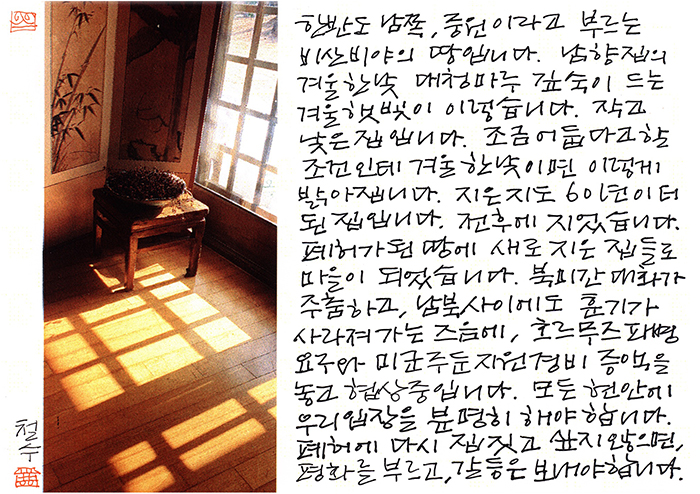 한반도 남쪽, 중원이라고 부르는
비산비야의 땅입니다. 남향집의
겨울한낮 대청마루 깊숙이 드는
겨울햇빛이 이렇습니다. 작고
낮은집입니다. 조금어둡다고할
조건인데 겨울한낮이면 이렇게
밝아집니다. 지은지도 60년이 더
된 집입니다. 전후에 지었습니다.
폐허가된 땅에 새로 지은 집들로
마을이 되었습니다. 북미간 대화가
주춤하고, 남북사이에도 훈기가
사라져가는 즈음에, 호르무즈파병
요구와 미군주둔지원경비 증액을
놓고 협상중입니다. 모든 현안에
우리입장을 분명히 해야합니다.
폐허에 다시 집짓고 싶지 않으면,
평화를 부르고, 갈등은 보내야합니다.
철수